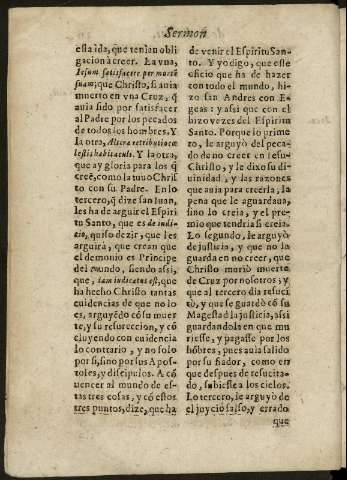 Sermon
esta ida, que tenian obli
gacion à creer. La vna,
Iesum satisfacere per mortē
suam; que Christo, si auia
muerto en vna Cruz, q̄
auia sido por satisfacer
al Padre por los pecados
de todos los hombres. Y
la otra, Altera retributiocæ
lestis habitaculi. Y la otra,
que ay gloria para los q̄
creē, como la tuuo Chris
to con su Padre. En lo
tercero, q̄ dize san Iuan,
les ha de arguir el Espiri
tu Santo, que es de iudi-
cio, quiso dezir, que les
arguirà, que crean que
el demonio es Principe
del mundo, siendo assi,
que, iam iudicatus est, que
ha hecho Christo tantas
euidencias de que no lo
es, arguyēdo cō su muer
te, y su resureccion, y cō
cluyendo con euidencia
lo contrario, y no solo
por si, sino por sus Apos-
toles, y discipulos. A cō
uencer al mundo de es-
tas tres cosas, y cō estos
tres puntos, dize, que ha
de venir el Espiritu San-
to. Y yo digo, que este
oficio que ha de hazer
con todo el mundo, hi-
zo san Andres con E-
geas: y assi que con el
hizo vezes del Espiritu
Santo. Porque lo prime-
ro, le arguyò del peca-
do de no creer en Iesu-
Christo, y le dixo su di-
uinidad, y las razones
que auia para creerla, la
pena que le aguardaua,
sino lo creia, y el pre-
mio que tendria si creia.
Lo segundo, le arguyò
de justicia, y que no la
guarda en no creer, que
Christo moriò muerte
de Cruz por nosotros; y
que al tercero dia resuci
tò, y que se guardò cō su
Magestad la justicia, assi
guardandola en que mu
riesse, y pagasse por los
hōbres, pues auia salido
por su fiador, como en
que despues de resucita-
do, subiesse a los cielos.
Lo tercero, le arguyò de
el juycio falso, y errado
que